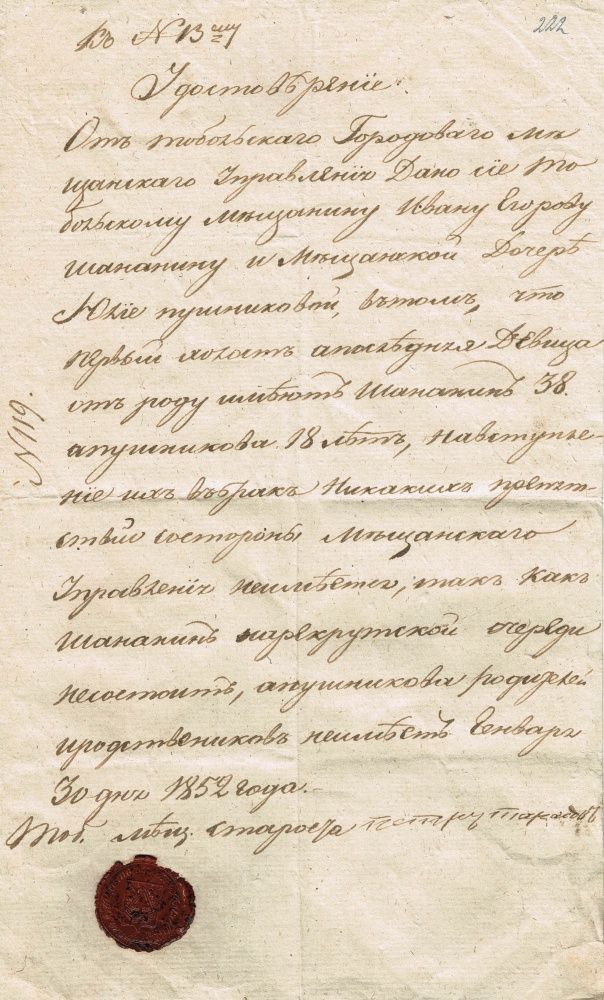 222
Къ N 13му
Удостовѣрение.
Отъ тобольскаго Городоваго мѣ
щанскаго Управления Дано сие То
больскому мѣщанину Ивану Егорову
Шапакину и Мѣщанской Дочерѣ
Юлие пушниковой, вътомъ, что
первый холостъ апослѣдняя Девица
отъ роду имѣютъ Шапакинъ 38.
апушникова 18 лѣтъ, навступле-
ние ихъ въбракъ Никакихъ препят-
ствий состороны Мѣщанскаго
Управления неимѣется, такъ какъ
Шапакинъ нарекрутской очереди
несостоитъ, апушникова родителей
иродствениковъ неимѣетъ Генваря
30 дня 1852 года.
Тоб. мѣщ. староста петръ
N 119.